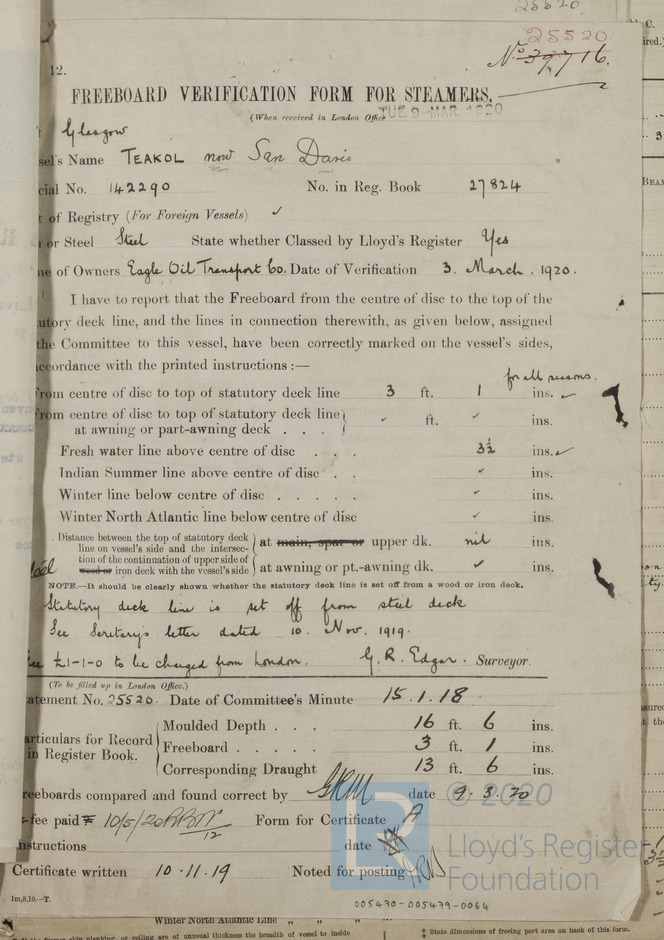 25520
25520.
No 39716.
12.
FREEBOARD VERIFICATION FORM FOR STEAMERS.
(When received in London Office
TUE 9 - MAR 1920
Glasgow
sel's Name TEAKOL now San Dario
cial No. 142290 No. in Reg. Book 27824
t of Registry (For Foreign Vessels) ✓
or Steel Steel State whether Classed by Lloyd's Register Yes
ne of Owners Eagle Oil Transport Co. Date of Verification 3. March. 1920.
I have to report that the Freeboard from the centre of disc to the top of the
utory deck line, and the lines in connection therewith, as given below, assigned
the Committee to this vessel, have been correctly marked on the vessel's sides,
ccordance with the printed instructions :—
for all seasons.
From centre of disc to top of statutory deck line 3 ft. 1 ins. ✓
From centre of disc to top of statutory deck line
at awning or part-awning deck . . . ✓ ft. ✓ ins.
Fresh water line above centre of disc . . . 3½ ins. ✓
Indian Summer line above centre of disc . . ✓ ins.
Winter line below centre of disc . . . . . ✓ ins.
Winter North Atlantic line below centre of disc ✓ ins.
Distance between the top of statutory deck
line on vessel's side and the intersec- at main, spar or upper dk. nil ins.
tion of the continuation of upper side of
wood or iron deck with the vessel's side at awning or pt.-awning dk. ✓ ins.
NOTE.—It should be clearly shown whether the statutory deck line is set off from a wood or iron deck.
Statutory deck line is set off from steel deck
See Secretary's letter dated 10. Nov. 1919.
Fee £1-1-0 to be charged from London. G. R. Edgar. Surveyor.
(To be filled up in London Office.)
atement No. 25520. Date of Committee's Minute 15.1.18
articulars for Record in Register Book.
Moulded Depth . . . 16 ft. 6 ins.
Freeboard . . . . . 3 ft. 1 ins.
Corresponding Draught 13 ft. 6 ins.
reeboards compared and found correct by date 9.3.20
fee paid 10/5/20 Form for Certificate A
12
nstructions date
Certificate written 10.11.19 Noted for posting
1m,8,19.—T.
© 2020
LR
Lloyd's Register
Foundation
005470-005479-0064
Winter North Atlantic Line „ „ „
‡ State dimensions of freeing port area on back of this form.